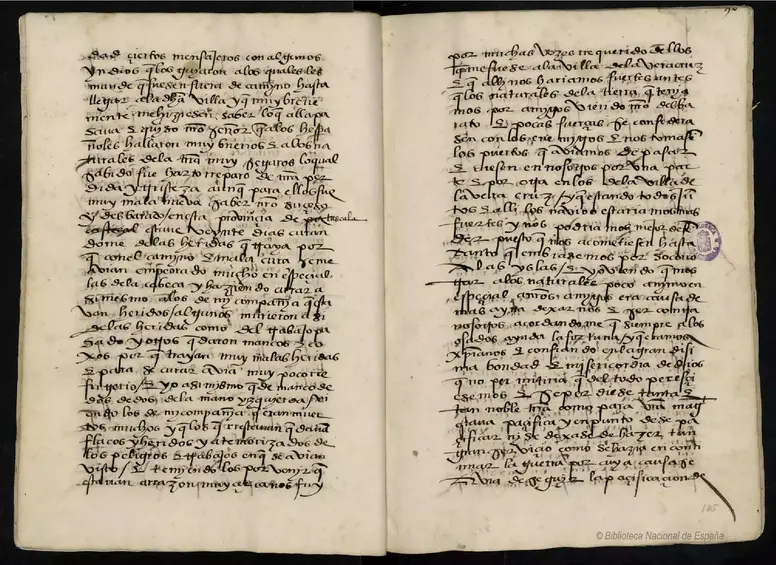 dad çiertos mensajeros con algunos
yndios q̃ los guyaron a los quales les
mande q̃ fuesen fuera de camyno hasta
llegar a la dha villa y q̃ muy breue
mente me hiziesen saber lo q̃ alla pa
saua e quyso nro señor q̃ a los hespa
ñoles hallaron muy buenos e a los na
turales de la trra muy seguros lo qual
sabido fue harto reparo de nra per
dida y tristeza aunq̃ para ellos fue
muy mala nueva saber nro suçeso
y desbarado en esta prouinçia de
tascala
estuue veynte dias curan
dome de las heridas q̃ traya por
q̃ con el camyno e mala cura se me
avian empeorado mucho en espeçial
las de la cabeça y haziendo curar a
si mesmo a los de my compañya q̃ esta
van heridos algunos murieron asi
de las heridas como del trabajo pa
sado y otros quedaron mancos e co
xos por q̃ trayan muy malas heridas
e para se curar avia muy poco re
frigerio e yo asi mesmo quede manco de
dos dedos de la mano yzquyerda vi
endo los de mi compañya q̃ eran muer
tos muchos y q̃ los q̃ restauan quedauā
flacos y heridos y atemorizados de
los peligros e trabajos en q̃ se avian
visto e temiendo los por venyr q̃
estauan a razon muy çercanos fuy
por muchas vezes requerido dellos
q̃ me fuese a la villa de la veracruz
e q̃ alli nos hariamos fuertes antes
q̃ los naturales de la tierra q̃ tenya
mos por amygos viendo nro desba
rato e pocas fuerças se confedera
sen con los enemigos e nos tomasē
los puertos q̃ aviamos de pasar
e diesen en nosotros por vna par
te e por otra en los de la villa de
la vera cruz y q̃ estando todos jun
tos e alli los navios estariamos mas
fuertes y nos podriamos mejor defē
der puesto q̃ nos acometiesen hasta
tanto q̃ enbiasemos por socorro
a las yslas e yo viendo q̃ mos
trar a los naturales poco anymo en
espeçial a nros amigos era causa de
mas ayna dexarnos e ser contra
nosotros acordandome q̃ siempre a los
osados ayuda la fortuna y q̃ eramos
xpianos e confiando en la grandisi
ma bondad e misericordia de dios
q̃ no permitiria q̃ del todo pereçi
esemos e se perdiese tanta e
tan noble trra como para vra mag
estaua paçifica y en punto de se pa
çificar ni se dexase de hazer tan
gran serviçio como se hazia en conti
nuar la guerra por cuya causa se
avia de seguyr la paçificaçion de
105
© Biblioteca Nacional de España